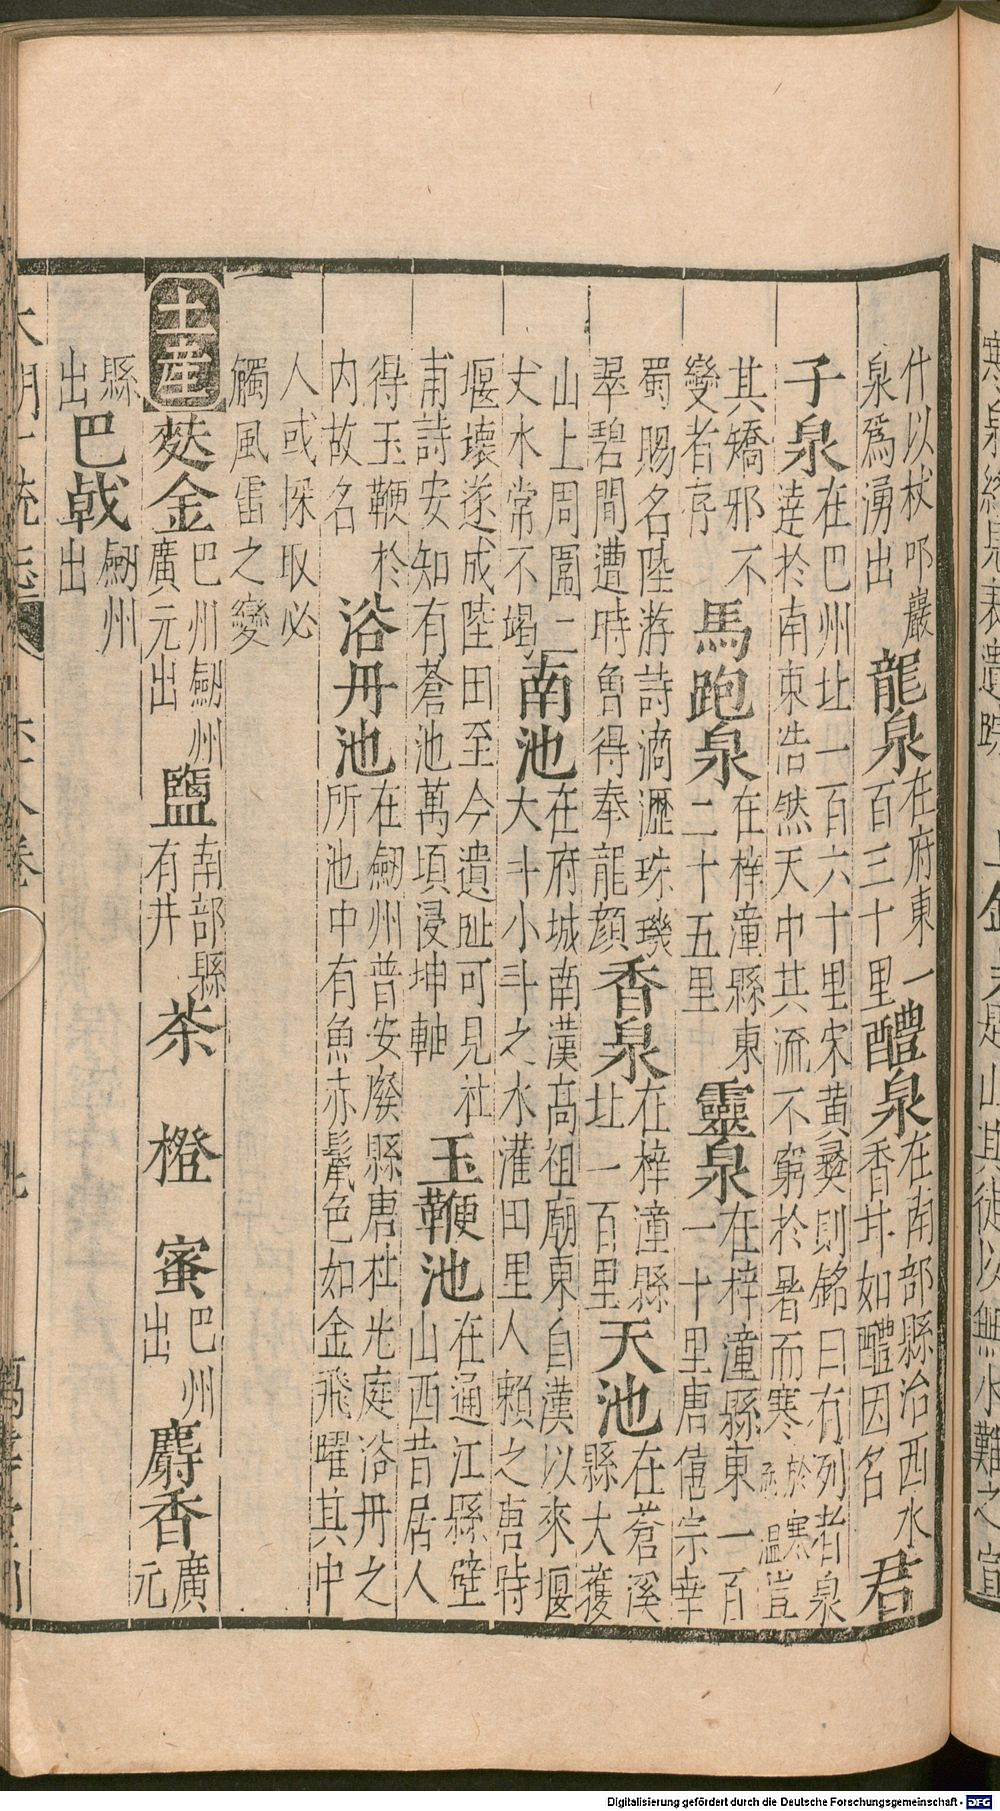 什以杖叩巖
泉爲湧出
龍泉
在府東一
百三十里
醴泉
在南部縣治西水
香甘如醴因名
君
子泉
在巴州北一百六十里宋黄彝則銘曰有列者泉
達於南東浩然天中其流不窮於暑而寒
於寒
溫豈
其矯邪不
變者序
馬跑泉
在梓潼縣東
二十五里
靈泉
在梓潼縣東一百
一十里唐僖宗幸
蜀賜名陸游詩滴瀝珠璣
翠碧間遭時曾得奉龍顔
香泉
在梓潼縣
北一百里
天池
在蒼溪
縣大蒦
山上周圍二
丈水常不竭
南池
在府城南漢高祖廟東自漢以來堰
大斗小斗之水灌田里人賴之唐時
堰壞遂成陸田至今遺趾可見杜
甫詩安知有蒼池萬頃浸坤軸
玉鞭池
在通江縣壁
山西昔居人
得玉鞭於
内故名
浴丹池
在劒州普安廢縣唐杜光庭浴丹之
所池中有魚赤鬣色如金飛曜其中
人或探取必
觸風雷之變
土產
麩金
巴州劒州
廣元出
鹽
南部縣
有井
茶
橙
蜜
巴州
出
麝香
廣
元
縣
出
巴戟
劒州
出
Digitalisierung gefördert durch die Deutsche Forschungsgemeinschaft - DFG